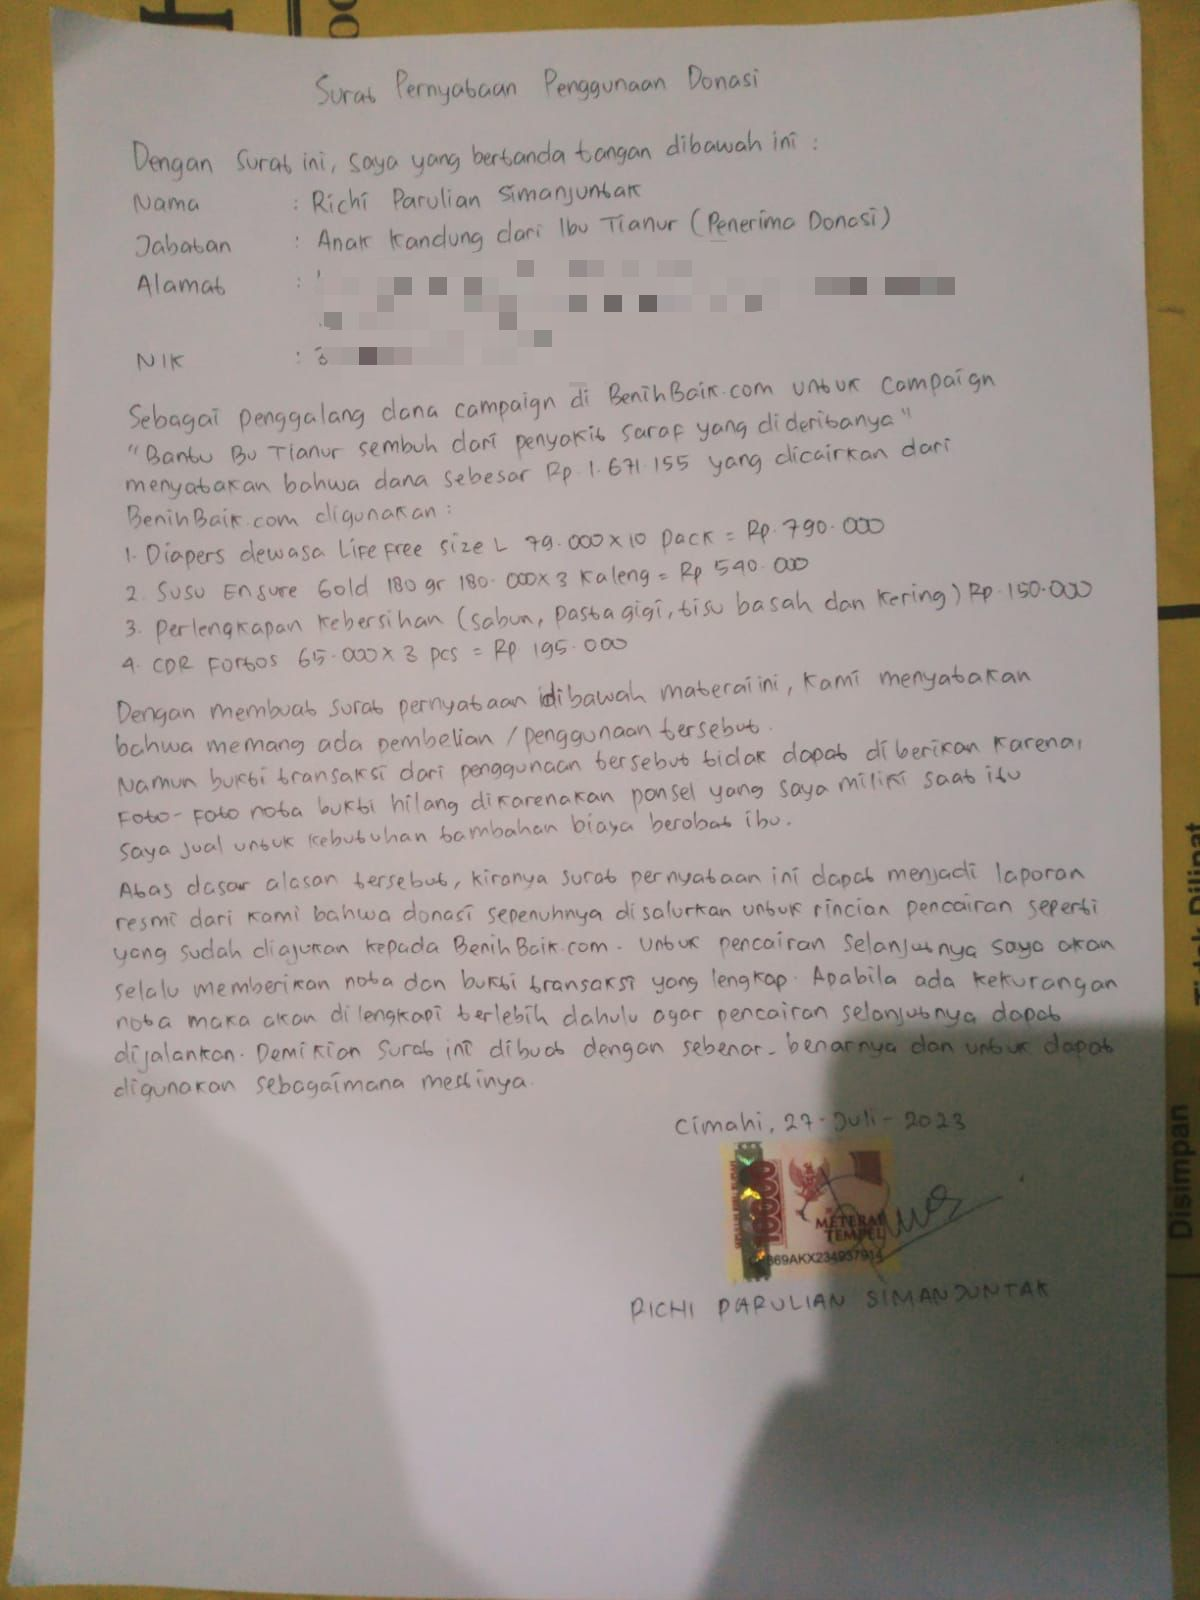 Surat Pernyataan Penggunaan Donasi
Dengan Surat ini, saya yang bertanda tangan dibawah ini :
Nama : Richi Parulian Simanjuntak
Jabatan : Anak Kandung dari Ibu Tianur (Penerima Donasi)
Alamat :
NIK : 3
Sebagai penggalang dana campaign di BenihBaik.com untuk campaign
"Bantu Bu Tianur sembuh dari penyakit saraf yang dideritanya"
menyatakan bahwa dana sebesar Rp. 1.671.155 yang dicairkan dari
BenihBaik.com digunakan :
1. Diapers dewasa Lifefree size L 79.000 x 10 pack = Rp. 790.000
2. Susu Ensure Gold 180 gr 180.000 x 3 Kaleng = Rp 540.000
3. Perlengkapan Kebersihan (sabun, pasta gigi, tisu basah dan kering) Rp. 150.000
4. CDR Fortos 65.000 x 3 pcs = Rp. 195.000
Dengan membuat surat pernyataan dibawah materai ini, kami menyatakan
bahwa memang ada pembelian / penggunaan tersebut.
Namun bukti transaksi dari penggunaan tersebut tidak dapat diberikan karena,
Foto-foto nota bukti hilang dikarenakan ponsel yang saya miliki saat itu
saya jual untuk kebutuhan tambahan biaya berobat ibu.
Atas dasar alasan tersebut, kiranya surat pernyataan ini dapat menjadi laporan
resmi dari kami bahwa donasi sepenuhnya disalurkan untuk rincian pencairan seperti
yang sudah diajukan kepada BenihBaik.com. Untuk pencairan selanjutnya saya akan
selalu memberikan nota dan bukti transaksi yang lengkap. Apabila ada kekurangan
nota maka akan dilengkapi terlebih dahulu agar pencairan selanjutnya dapat
dijalankan. Demikian Surat ini dibuat dengan sebenar-benarnya dan untuk dapat
digunakan sebagaimana mestinya.
Cimahi, 27-Juli-2023
10000
METERAI
TEMPEL
869AKX234937914
RICHI PARULIAN SIMANJUNTAK
Disimpan